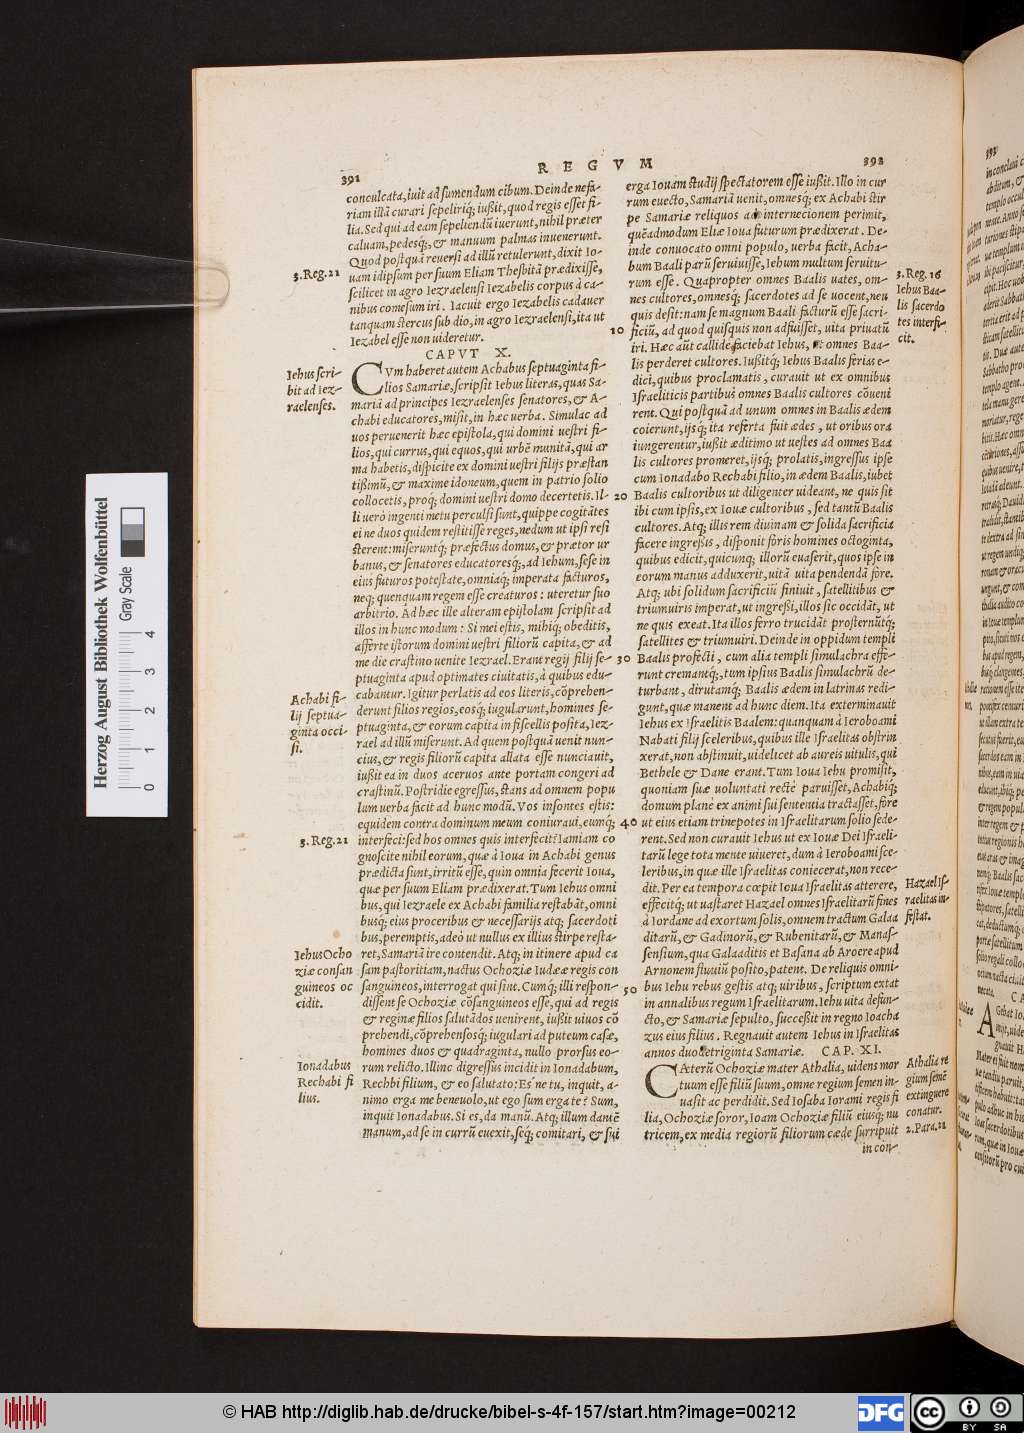 391
R E G V M
392
conculcata, iuit ad sumendum cibum. Deinde nefa-
riam illā curari sepeliriq; iußit, quod regis esset fi-
lia. Sed qui ad eam sepeliendū iuerunt, nihil præter
caluam, pedesq;, & manuum palmas inuenerunt.
Quod postquā reuersi ad illū retulerunt, dixit Io-
uam idipsum per suum Eliam Thesbitā prædixisse,
scilicet in agro Iezraelensi Iezabelis corpus à ca-
nibus comesum iri. Iacuit ergo Iezabelis cadauer
tanquam stercus sub dio, in agro Iezraelensi, ita ut
Iezabel esse non uideretur.
3. Reg. 21
CAPVT X.
CVm haberet autem Achabus septuaginta fi-
lios Samariæ, scripsit Iehus literas, quas Sa-
mariā ad principes Iezraelenses senatores, & A-
chabi educatores, misit, in hæc uerba. Simulac ad
uos peruenerit hæc epistola, qui domini uestri fi-
lios, qui currus, qui equos, qui urbē munitā, qui ar
ma habetis, dispicite ex domini uestri filijs præstan
tißimū, & maxime idoneum, quem in patrio solio
collocetis, proq; domini uestri domo decertetis. Il-
li uerò ingenti metu perculsi sunt, quippe cogitātes
ei ne duos quidem restitisse reges, nedum ut ipsi resi
sterent: miseruntq; præfectus domus, & prætor ur
banus, & senatores educatoresq;, ad Iehum, sese in
eius futuros potestate, omniaq; imperata facturos,
neq; quenquam regem esse creaturos: uteretur suo
arbitrio. Ad hæc ille alteram epistolam scripsit ad
illos in hunc modum: Si mei estis, mihiq; obeditis,
afferte istorum domini uestri filiorū capita, & ad
me die crastino uenite Iezrael. Erant regij filij se-
ptuaginta apud optimates ciuitatis, à quibus edu-
cabantur. Igitur perlatis ad eos literis, cōprehen-
derunt filios regios, eosq; iugularunt, homines se-
ptuaginta, & eorum capita in fiscellis posita, Iez-
rael ad illū miserunt. Ad quem postquā uenit nun-
cius, & regis filiorū capita allata esse nunciauit,
iußit ea in duos aceruos ante portam congeri ad
crastinū. Postridie egressus, stans ad omnem popu
lum uerba facit ad hunc modū. Vos insontes estis:
equidem contra dominum meum coniuraui, eumq;
interfeci: sed hos omnes quis interfecit? Iam iam co
gnoscite nihil eorum, quæ à Ioua in Achabi genus
prædicta sunt, irritū esse, quin omnia fecerit Ioua,
quæ per suum Eliam prædixerat. Tum Iehus omni
bus, qui Iezraele ex Achabi familia restabāt, omni
busq; eius proceribus & necessarijs atq; sacerdoti
bus, peremptis, adeò ut nullus ex illius stirpe resta-
ret, Samariā ire contendit. Atq; in itinere apud ca
sam pastoritiam, nactus Ochoziæ Iudææ regis con
sanguineos, interrogat qui sint. Cumq; illi respon-
dissent se Ochoziæ cōsanguineos esse, qui ad regis
& reginæ filios salutādos uenirent, iußit uiuos cō
prehendi, cōprehensosq; iugulari ad puteum casæ,
homines duos & quadraginta, nullo prorsus eo-
rum relicto. Illinc digressus incidit in Ionadabum,
Rechbi filium, & eo salutato: Es'ne tu, inquit, a-
nimo erga me beneuolo, ut ego sum erga te? Sum,
inquit Ionadabus. Si es, da manū. Atq; illum dantē
manum, ad se in currū euexit, seq; comitari, & sui
Iehus scri-
bit ad Iez-
raelenses.
Achabi fi-
lij septua-
ginta occi-
si.
3. Reg. 21
Iehus Ocho
ziæ consan
guineos oc
cidit.
Ionadabus
Rechabi fi
lius.
10
20
30
40
50
erga Iouam studij spectatorem esse iußit. Illo in cur
rum euecto, Samariā uenit, omnesq; ex Achabi stir
pe Samariæ reliquos ad internecionem perimit,
quēadmodum Eliæ Ioua futurum prædixerat. De-
inde conuocato omni populo, uerba facit, Acha-
bum Baali parū seruiuisse, Iehum multum seruitu-
rum esse. Quapropter omnes Baalis uates, om-
nes cultores, omnesq; sacerdotes ad se uocent, neu
quis desit: nam se magnum Baali facturū esse sacri-
ficiū, ad quod quisquis non adfuisset, uita priuatū
iri. Hæc aūt callide faciebat Iehus, ut omnes Baa-
lis perderet cultores. Iußitq; Iehus Baalis ferias e-
dici, quibus proclamatis, curauit ut ex omnibus
Israeliticis partibus omnes Baalis cultores cōueni
rent. Qui postquā ad unum omnes in Baalis ædem
coierunt, ijsq; ita referta fuit ædes, ut oribus ora
iungerentur, iußit æditimo ut uestes ad omnes Baa
lis cultores promeret, ijsq; prolatis, ingressus ipse
cum Ionadabo Rechabi filio, in ædem Baalis, iubet
Baalis cultoribus ut diligenter uideant, ne quis sit
ibi cum ipsis, ex Iouæ cultoribus, sed tantū Baalis
cultores. Atq; illis rem diuinam & solida sacrificia
facere ingreßis, disponit foris homines octoginta,
quibus edicit, quicunq; illorū euaserit, quos ipse in
eorum manus adduxerit, uitā uita pendendā fore.
Atq; ubi solidum sacrificiū finiuit, satellitibus &
triumuiris imperat, ut ingreßi, illos sic occidāt, ut
ne quis exeat. Ita illos ferro trucidāt prosternūtq;
satellites & triumuiri. Deinde in oppidum templi
Baalis profecti, cum alia templi simulachra effe-
runt cremantq;, tum ipsius Baalis simulachrū de-
turbant, dirutamq; Baalis ædem in latrinas redi-
gunt, quæ manent ad hunc diem. Ita exterminauit
Iehus ex Israelitis Baalem: quanquam à Ieroboami
Nabati filij sceleribus, quibus ille Israelitas obstrin
xerat, non abstinuit, uidelicet ab aureis uitulis, qui
Bethele & Dane erant. Tum Ioua Iehu promisit,
quoniam suæ uoluntati rectè paruisset, Achabiq;
domum planè ex animi sui sententia tractasset, fore
ut eius etiam trinepotes in Israelitarum solio sede-
rent. Sed non curauit Iehus ut ex Iouæ Dei Israeli-
tarū lege tota mente uiueret, dum à Ieroboami sce-
leribus, in quæ ille Israelitas coniecerat, non rece-
dit. Per ea tempora cœpit Ioua Israelitas atterere,
effecitq; ut uastaret Hazael omnes Israelitarū fines
à Iordane ad exortum solis, omnem tractum Galaa
ditarū, & Gadinorū, & Rubenitarū, & Manas-
sensium, qua Galaaditis et Basana ab Aroere apud
Arnonem fluuiū posito, patent. De reliquis omni-
bus Iehu rebus gestis atq; uiribus, scriptum extat
in annalibus regum Israelitarum. Iehu uita defun-
cto, & Samariæ sepulto, succeßit in regno Ioacha
zus eius filius. Regnauit autem Iehus in Israelitas
annos duodetriginta Samariæ. CAP. XI.
CAterū Ochoziæ mater Athalia, uidens mor
tuum esse filiū suum, omne regium semen in-
uasit ac perdidit. Sed Iosaba Iorami regis fi
lia, Ochoziæ soror, Ioam Ochoziæ filiū eiusq; nu
tricem, ex media regiorū filiorum cæde surripuit
in con-
3. Reg. 16
Iehus Baa-
lis sacerdo
tes interfi-
cit.
Hazael Is-
raelitas in-
festat.
Athalia re
gium semē
extinguere
conatur.
2. Para. 22
393
Herzog August Bibliothek Wolfenbüttel
Gray Scale
0 1 2 3 4
© HAB http://diglib.hab.de/drucke/bibel-s-4f-157/start.htm?image=00212
DFG
cc
BY SA